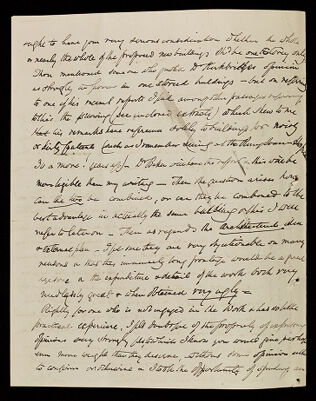 ought to have your very serious consideration whether the whole
or nearly the whole of the proposed new buildings shd be one storey only
Thou mentioned some one who quoted Dr Kirkbride's opinion
as strongly in favor in one storied buildings - but on referring
to one of his recent reports I find amongst other passages referring
to this the following (see enclosed extracts) which shew to me
that his remarks have reference solely to buildings for noisy
& dirty patients (such as I remember seeing at the
30 or more years ago) - Dr
more legible than my writing - Then the question arises how
can the two be combined, or can they be combined to the
best advantage in actually the same building or this I will
refer to later on - Then as regards the architectural idea
& external plan - I feel one they are very objectionable on many
reasons in that their immensely long frontage would be a great
in the expenditure & detail of the work both very
needlessly great & when obtained very ugly =
Rightly for one who is not engaged in the work & has not the
practical experience, I feel doubtful of the propriety of expressing
opinions very strongly lest which I know you would give perhaps
even more weight than they deserve, without some opinion
to confirm or otherwise - I take the opportunity of spending an